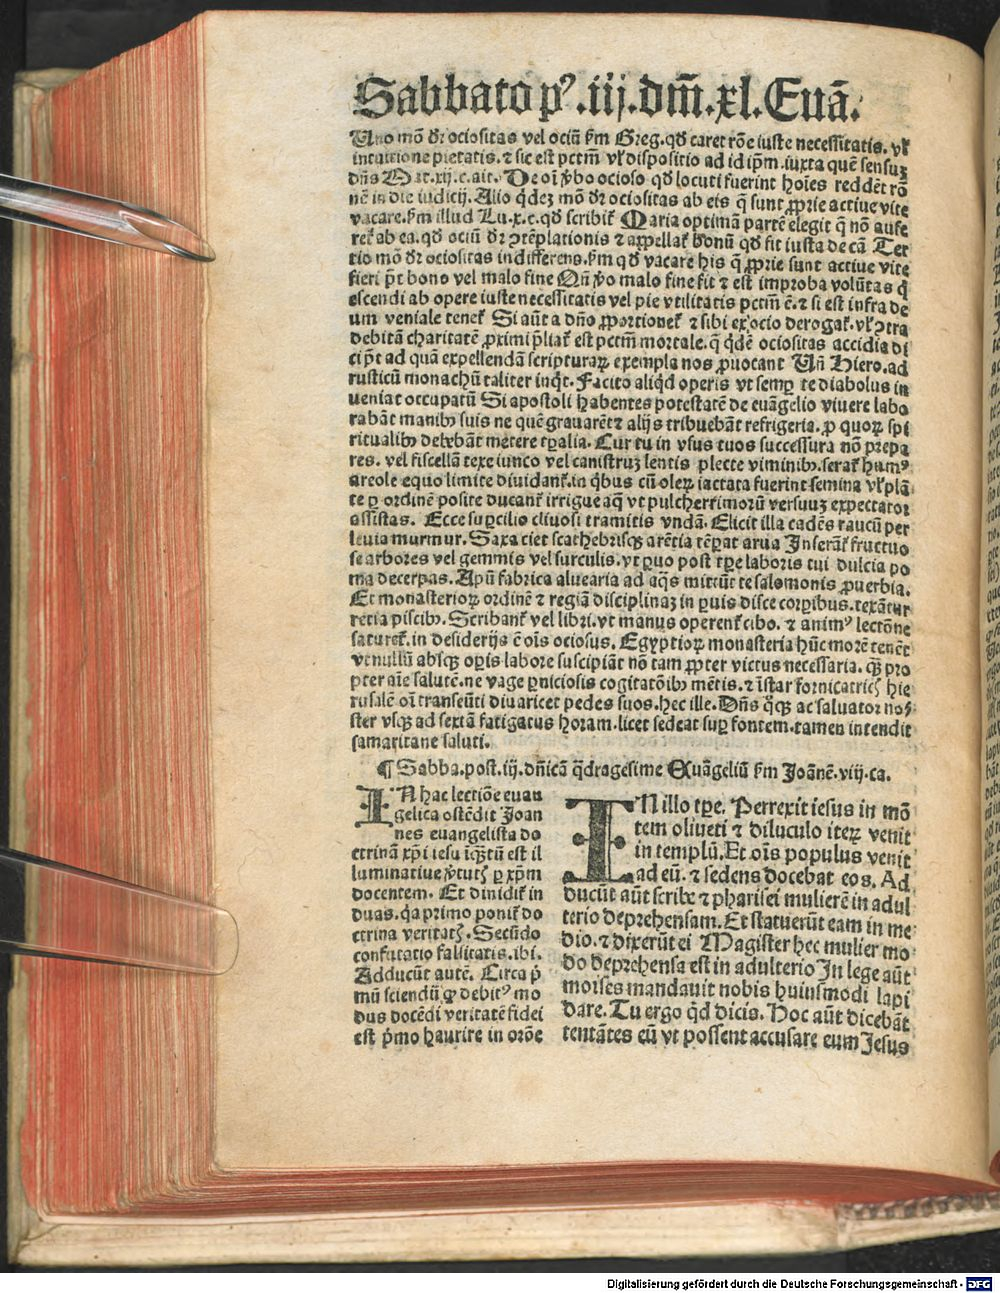 Sabbato pꝰ.iij.dm̄.xl.Euā.
Uno mō dr̄ ociositas vel ociū ẜm Greg.qd̄ caret rōe iuste necessitatis. vl̄
intuitione pietatis. ⁊ sic est pctm̄ vl̄ dispositio ad id ip̄m. iuxta quē sensuꝫ
dn̄s Mat.xij.c.ait. De oī ꝟbo ocioso qd̄ locuti fuerint hoīes reddēt rō
nē in die iudicij. Alio q̇dez mō dr̄ ociositas ab eis q̄ sunt ꝓprie actiue vite
vacare. ẜm illud Lu.x.c.qd̄ scribit̄ Maria optimā partē elegit q̄ nō aufe
ret̄ ab ea. qd̄ ociū dr̄ ↄtēplationis ⁊ appellat̄ bonū qd̄ fit iusta de cā Ter
tio mō dr̄ ociositas indifferens. ẜm qd̄ vacare his q̄ ꝓprie sunt actiue vite
fieri pt̄ bono vel malo fine Qn̄ ꝟo malo fine fit ⁊ est improba volūtas q̄
escendi ab opere iuste necessitatis vel pie vtilitatis pctm̄ ē. ⁊ si est infra de
um veniale tenet̄ Si aūt a dn̄o ꝓportionet̄ ⁊ sibi ex ocio derogat̄. vl̄ ↄtra
debitā charitatē ꝓximi p̄liat̄ est pctm̄ mortale. q̄ q̇dē ociositas accidia di
ci pt̄ ad quā expellendā scripturaꝝ exempla nos ꝓuocant Un̄ Hiero. ad
rusticū monachū taliter inq̇t. Facito aliq̇d operis vt semꝑ te diabolus in
ueniat occupatū Si apostoli habentes potestatē de euāgelio viuere labo
rabāt manibꝫ suis ne quē grauarēt ⁊ alijs tribuebāt refrigeria. ꝓ quoꝝ spi
ritualibꝫ debebāt metere tꝑalia. Cur tu in vsus tuos successura nō prepa
res. vel fiscellā texe iunco vel canistruꝫ lentis plecte viminibꝫ. serat̄ humꝰ
areole equo limite diuidant̄. in q̇bus cū oleꝝ iactata fuerint semina vl̄ plā
te ꝑ ordinē posite ducant̄ irrigue aq̄ vt pulcherrimorū versuuꝫ expectator
assistas. Ecce suꝑcilio cliuosi tramitis vndā. Elicit illa cadēs raucū per
leuia murmur. Saxa ciet scathebrisqꝫ arētia tēꝑat arua Inserāt̄ fructuo
se arbores vel gemmis vel surculis. vt ꝑuo post tꝑe laboris tui dulcia po
ma decerpas. Apū fabrica aluearia ad aq̄s mittūt te salomonis ꝓuerbia.
Et monasterioꝝ ordinē ⁊ regiā disciplinaꝫ in ꝑuis disce corꝑibus. texātur
retia piscibꝫ. Scribant̄ vel libri. vt manus operent̄ cibo. ⁊ animꝰ lectōne
saturet̄. in desiderijs ē oīs ociosus. Egyptioꝝ monasteria hūc morē tenēt
vt nullū absqꝫ oꝑis labore suscipiāt nō tam ꝓpter victus necessaria. qꝫ pro
pter aīe salutē. ne vage ꝑniciosis cogitatōibꝫ mētis. ⁊ īstar fornicatricꝭ hie
rusalē oī transeūti diuaricet pedes suos. hec ille. Dn̄s q̊qꝫ ac saluator no
ster vsqꝫ ad sextā fatigatus horam. licet sedeat suꝑ fontem. tamen intendit
samaritane saluti.
¶ Sabba.post.iij.dn̄icā q̄dragesime Euāgeliū ẜm Joānē.viij.ca.
IN hac lectiōe euan
gelica ostēdit Joan
nes euangelista do
ctrinā xp̄i iesu īqꝫtū est il
luminatiue ꝟtutꝭ ꝑ xp̄m
docentem. Et diuidit̄ in
duas. q̇a primo ponit̄ do
ctrina veritatꝭ. Secūdo
confutatio falsitatis. ibi.
Adducūt autē. Circa p̄
mū sciendū ꝙ debitꝰ mo
dus docēdi veritatē fidei
est p̄mo haurire in orōe
IN illo tꝑe. Perrexit iesus in mō
tem oliueti ⁊ diluculo iteꝝ venit
in templū. Et oīs populus venit
ad eū. ⁊ sedens docebat eos. Ad
ducūt aūt scribe ⁊ pharisei mulierē in adul
terio deprehensam. Et statuerūt eam in me
dio. ⁊ dixerūt ei Magister hec mulier mo
do deprehensa est in adulterio In lege aūt
moises mandauit nobis huiusmodi lapi
dare. Tu ergo q̇d dicis. Hoc aūt dicebāt
tentātes eū vt possent accusare eum Jesus
Digitalisierung gefördert durch die Deutsche Forschungsgemeinschaft - DFG